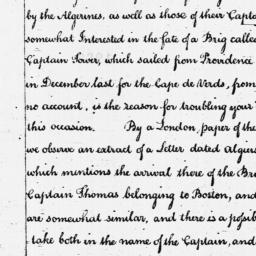 by the Algerines, as well as those of their Capta
somewhat Interested in the fate of a Brig calle
Captain Tower, which sailed from Providence
in December last for the Cape de Verds, from
no account, is the reason for troubling your
this occasion. By a London paper of the
we observe an extract of a Letter dated Algiers
which mentions the arrival there of the Br
Captain Thomas belonging to Boston, and
are somewhat similar, and there is a possib
take both in the name of the Captain, and